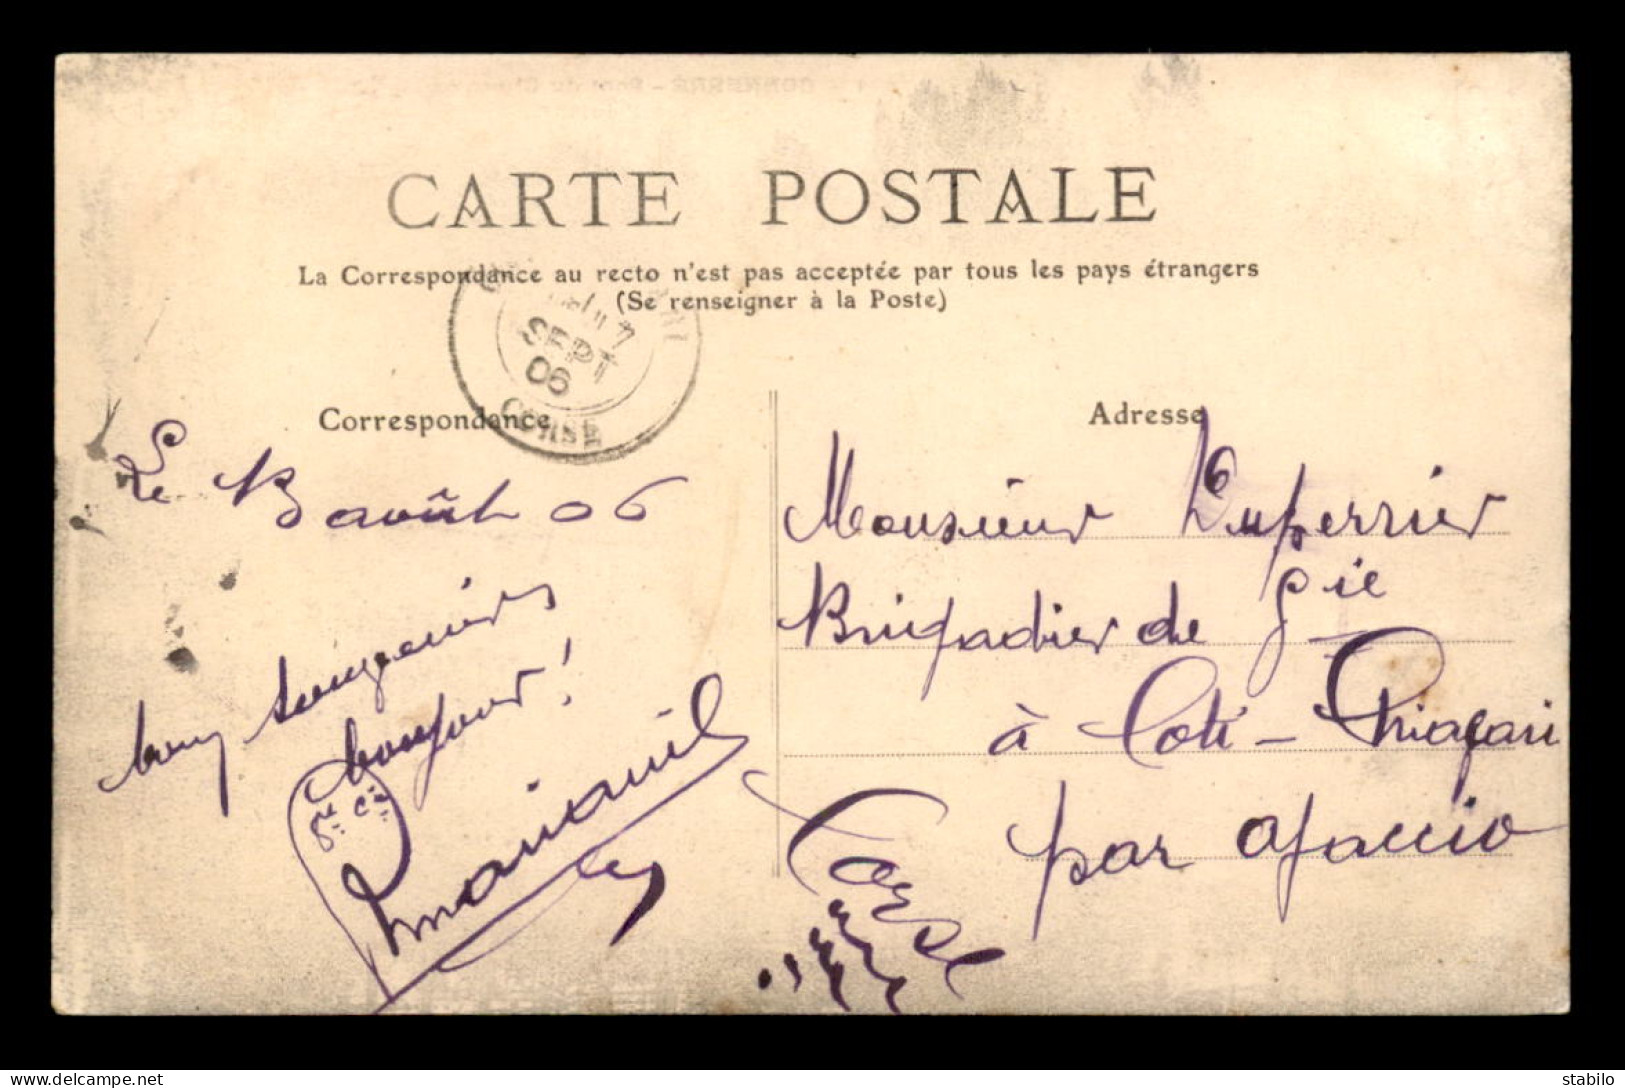 CARTE POSTALE
La Correspondance au recto n'est pas acceptée par tous les pays étrangers
(Se renseigner à la Poste)
7
SEPT
06
CORSE
Correspondance
Le 13 août 06
bonjour !
Adresse
Monsieur Duperrier
Brigadier de gie
à Coti - Chiavari
par Ajaccio
Corse
delcampe.net
stabilo